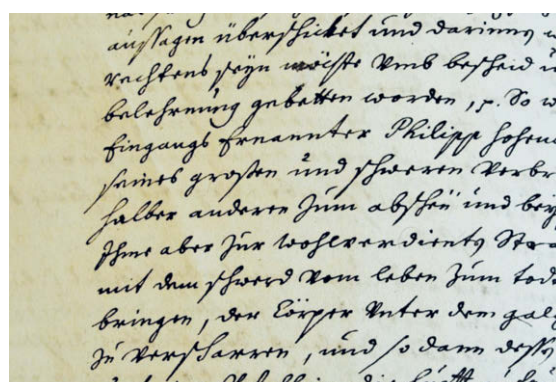 aussagen überschicket und darinnen
rechtens seyn möchte Vmb bescheid
belehrnung gebetten worden, p. So
Eingangs Ernannter Philipp hohen
seines großen und schweren Verbr
halber anderen Zum abscheü und bey
Ihme aber Zur wohlverdienten Stra
mit dem schwerd Vom leben Zum tod
bringen, der Cörper Vnter dem gal
Zu Verscharren, und so dann dessen